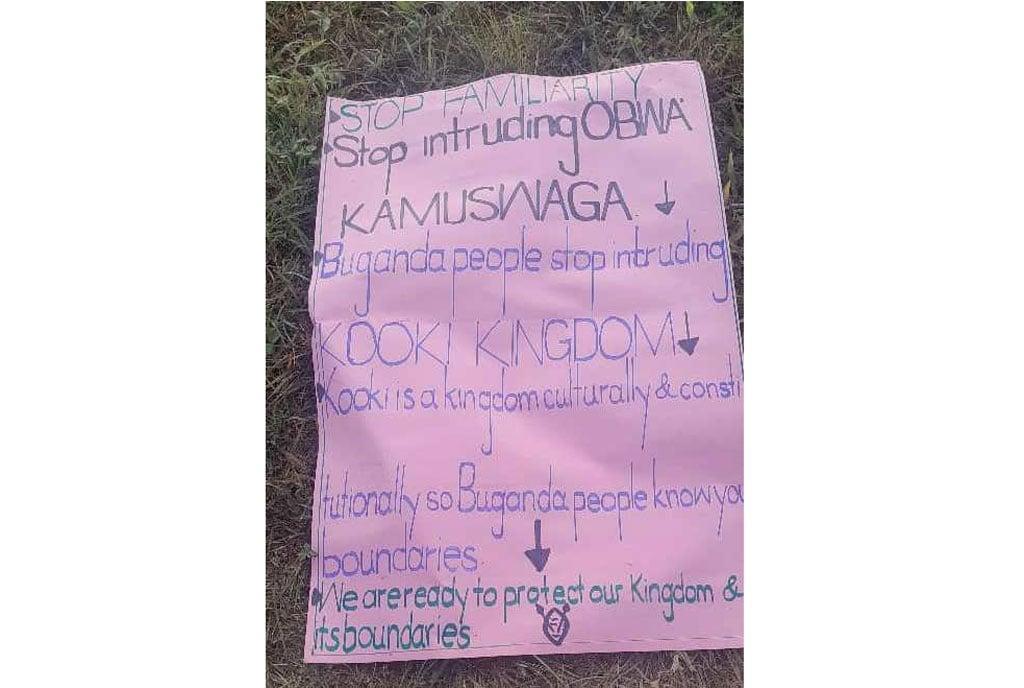 STOP FAMILIARITY
Stop intruding OBWA
KAMUSWAGA
Buganda people stop intruding
KOOKI KINGDOM
Kooki is a kingdom culturally & consti
tutionally so Buganda people know you
boundaries
We are ready to protect our Kingdom &
its boundaries